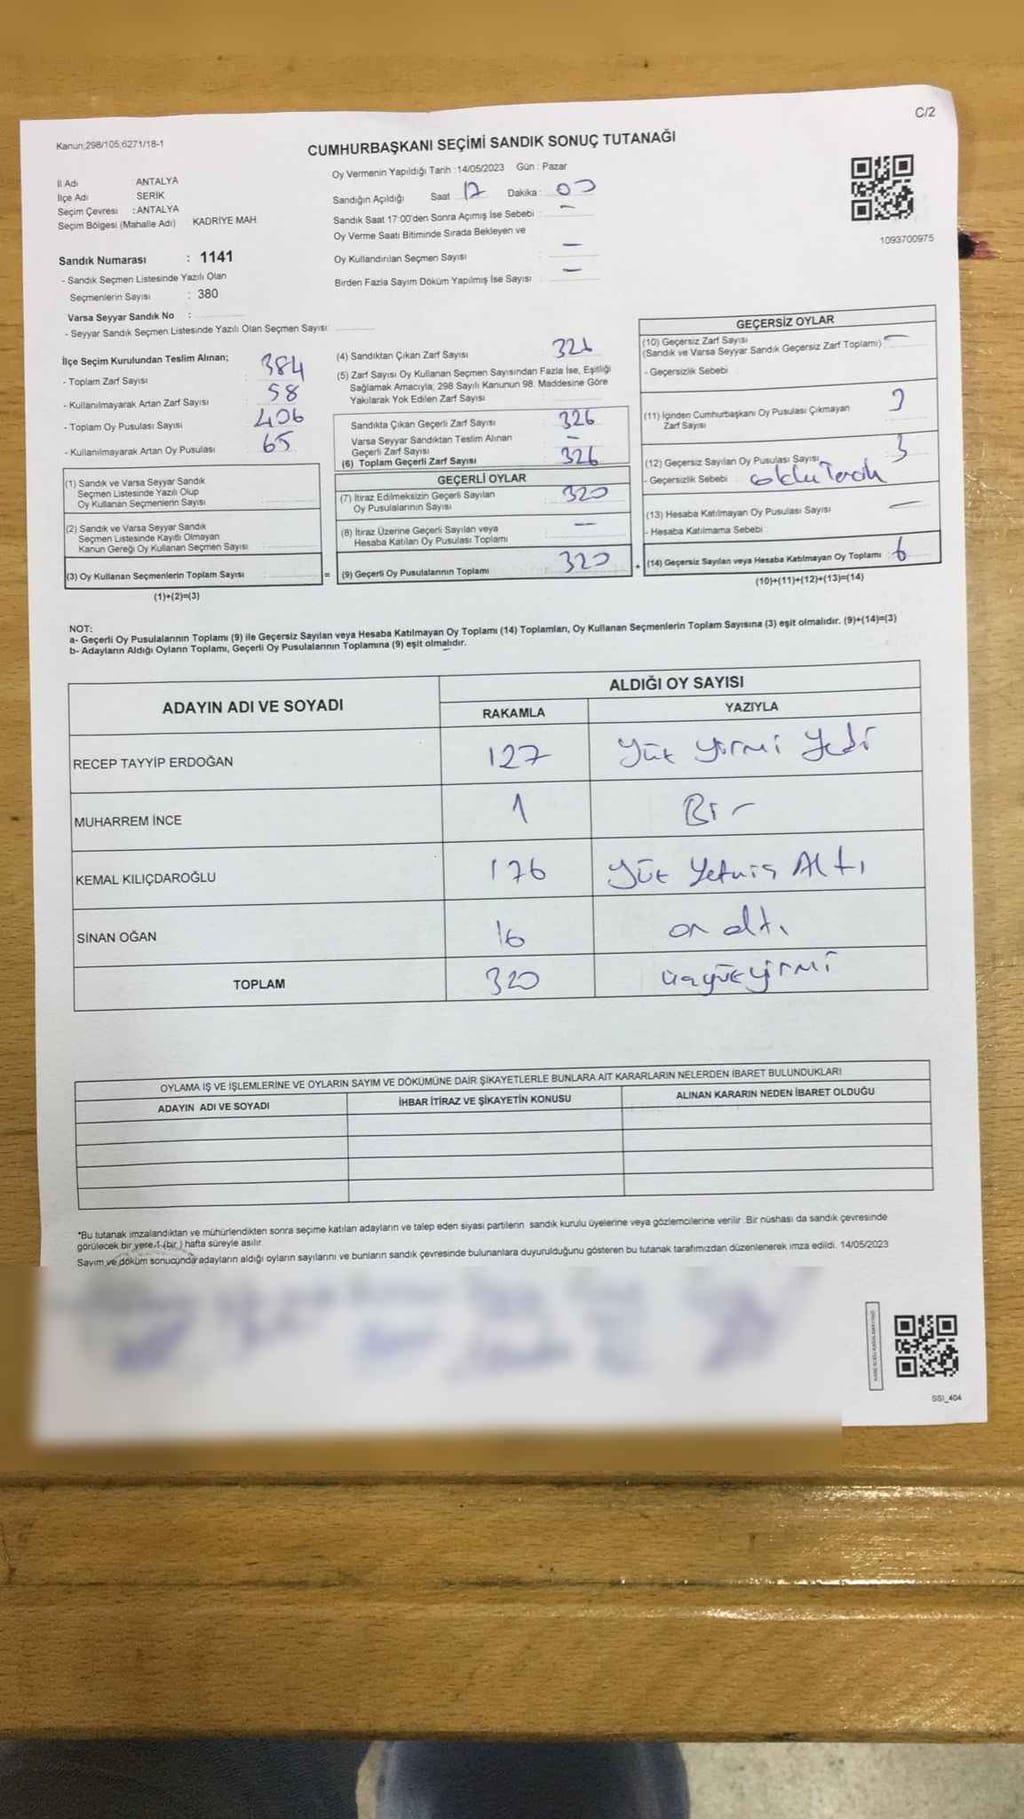 C/2
Kanun:298/105;6271/18-1
CUMHURBAŞKANI SEÇİMİ SANDIK SONUÇ TUTANAĞI
İl Adı : ANTALYA
İlçe Adı : SERİK
Seçim Çevresi : ANTALYA
Seçim Bölgesi (Mahalle Adı) KADRİYE MAH.
Sandık Numarası : 1141
- Sandık Seçmen Listesinde Yazılı Olan
Seçmenlerin Sayısı : 380
Varsa Seyyar Sandık No :
- Seyyar Sandık Seçmen Listesinde Yazılı Olan Seçmen Sayısı:
Oy Vermenin Yapıldığı Tarih :14/05/2023 Gün : Pazar
Sandığın Açıldığı Saat 17 Dakika : 00
Sandık Saat 17:00'den Sonra Açımış İse Sebebi : -
Oy Verme Saati Bitiminde Sırada Bekleyen ve
Oy Kullandırılan Seçmen Sayısı : -
Birden Fazla Sayım Döküm Yapılmış İse Sayısı : -
1093700975
İlçe Seçim Kurulundan Teslim Alınan;
- Toplam Zarf Sayısı : 384
- Kullanılmayarak Artan Zarf Sayısı : 58
- Toplam Oy Pusulası Sayısı : 406
- Kullanılmayarak Artan Oy Pusulası : 65
(1) Sandık ve Varsa Seyyar Sandık
Seçmen Listesinde Yazılı Olup
Oy Kullanan Seçmenlerin Sayısı :
(2) Sandık ve Varsa Seyyar Sandık
Seçmen Listesinde Kayıtlı Olmayan
Kanun Gereği Oy Kullanan Seçmen Sayısı :
(3) Oy Kullanan Seçmenlerin Toplam Sayısı :
(1)+(2)=(3)
(4) Sandıktan Çıkan Zarf Sayısı 326
(5) Zarf Sayısı Oy Kullanan Seçmen Sayısından Fazla İse, Eşitliği
Sağlamak Amacıyla; 298 Sayılı Kanunun 98. Maddesine Göre
Yakılarak Yok Edilen Zarf Sayısı
Sandıkta Çıkan Geçerli Zarf Sayısı : 326
Varsa Seyyar Sandıktan Teslim Alınan
Geçerli Zarf Sayısı : -
(6) Toplam Geçerli Zarf Sayısı : 326
GEÇERLİ OYLAR
(7) İtiraz Edilmeksizin Geçerli Sayılan
Oy Pusulalarının Sayısı : 320
(8) İtiraz Üzerine Geçerli Sayılan veya
Hesaba Katılan Oy Pusulası Toplamı : -
= (9) Geçerli Oy Pusulalarının Toplamı : 320
GEÇERSİZ OYLAR
(10) Geçersiz Zarf Sayısı
(Sandık ve Varsa Seyyar Sandık Geçersiz Zarf Toplamı) : -
- Geçersizlik Sebebi
(11) İçinden Cumhurbaşkanı Oy Pusulası Çıkmayan
Zarf Sayısı
(12) Geçersiz Sayılan Oy Pusulası Sayısı : 3
- Geçersizlik Sebebi : çoklu Tercih
(13) Hesaba Katılmayan Oy Pusulası Sayısı : -
- Hesaba Katılmama Sebebi :
+ (14) Geçersiz Sayılan veya Hesaba Katılmayan Oy Toplamı : 6
(10)+(11)+(12)+(13)=(14)
NOT:
a- Geçerli Oy Pusulalarının Toplamı (9) ile Geçersiz Sayılan veya Hesaba Katılmayan Oy Toplamı (14) Toplamları, Oy Kullanan Seçmenlerin Toplam Sayısına (3) eşit olmalıdır. (9)+(14)=(3)
b- Adayların Aldığı Oyların Toplamı, Geçerli Oy Pusulalarının Toplamına (9) eşit olmalıdır.
ADAYIN ADI VE SOYADI ALDIĞI OY SAYISI
RAKAMLA YAZIYLA
RECEP TAYYİP ERDOĞAN 127 Yüz Yirmi Yedi
MUHARREM İNCE 1 Bir
KEMAL KILIÇDAROĞLU 176 Yüz Yetmiş Altı
SİNAN OĞAN 16 on altı
TOPLAM 320 üçyüzyirmi
OYLAMA İŞ VE İŞLEMLERİNE VE OYLARIN SAYIM VE DÖKÜMÜNE DAİR ŞİKAYETLERLE BUNLARA AİT KARARLARIN NELERDEN İBARET BULUNDUKLARI
ADAYIN ADI VE SOYADI İHBAR İTİRAZ VE ŞİKAYETİN KONUSU ALINAN KARARIN NEDEN İBARET OLDUĞU
*Bu tutanak imzalandıktan ve mühürlendikten sonra seçime katılan adayların ve talep eden siyasi partilerin sandık kurulu üyelerine veya gözlemcilerine verilir. Bir nüshası da sandık çevresinde
görülecek bir yere 1 (bir ) hafta süreyle asılır.
Sayım ve döküm sonucunda adayların aldığı oyların sayılarını ve bunların sandık çevresinde bulunanlara duyurulduğunu gösteren bu tutanak tarafımızdan düzenlenerek imza edildi. 14/05/2023
SSI_404